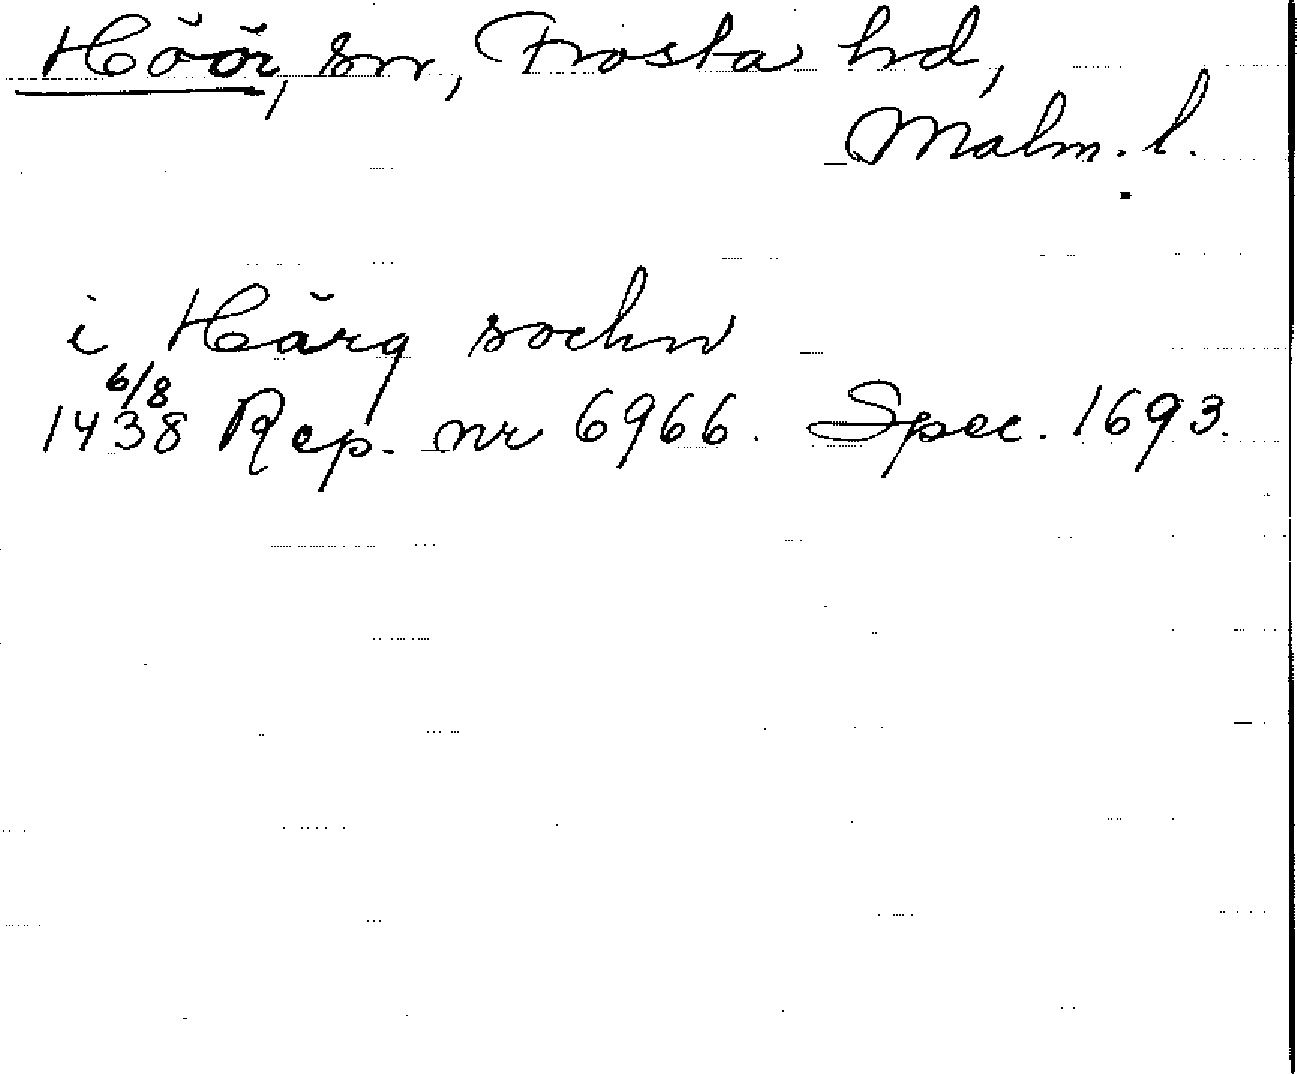 Höör, sn, Frosta hd,
Malm. l.
i Härg sochn
6/8
1438 Rep. nr 6966. Spec. 1693.